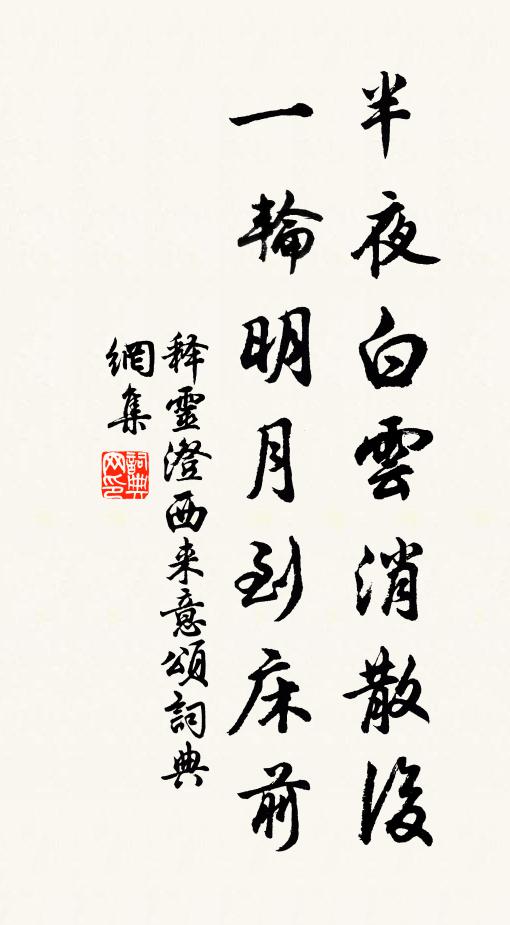 半夜白雲消散後
一輪明月到床前
释靈澄西来意頌詞典
網集
詞典
网印